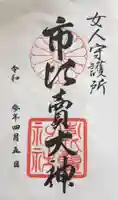 女人守護所
市比賣大神
令和
参年四月五日